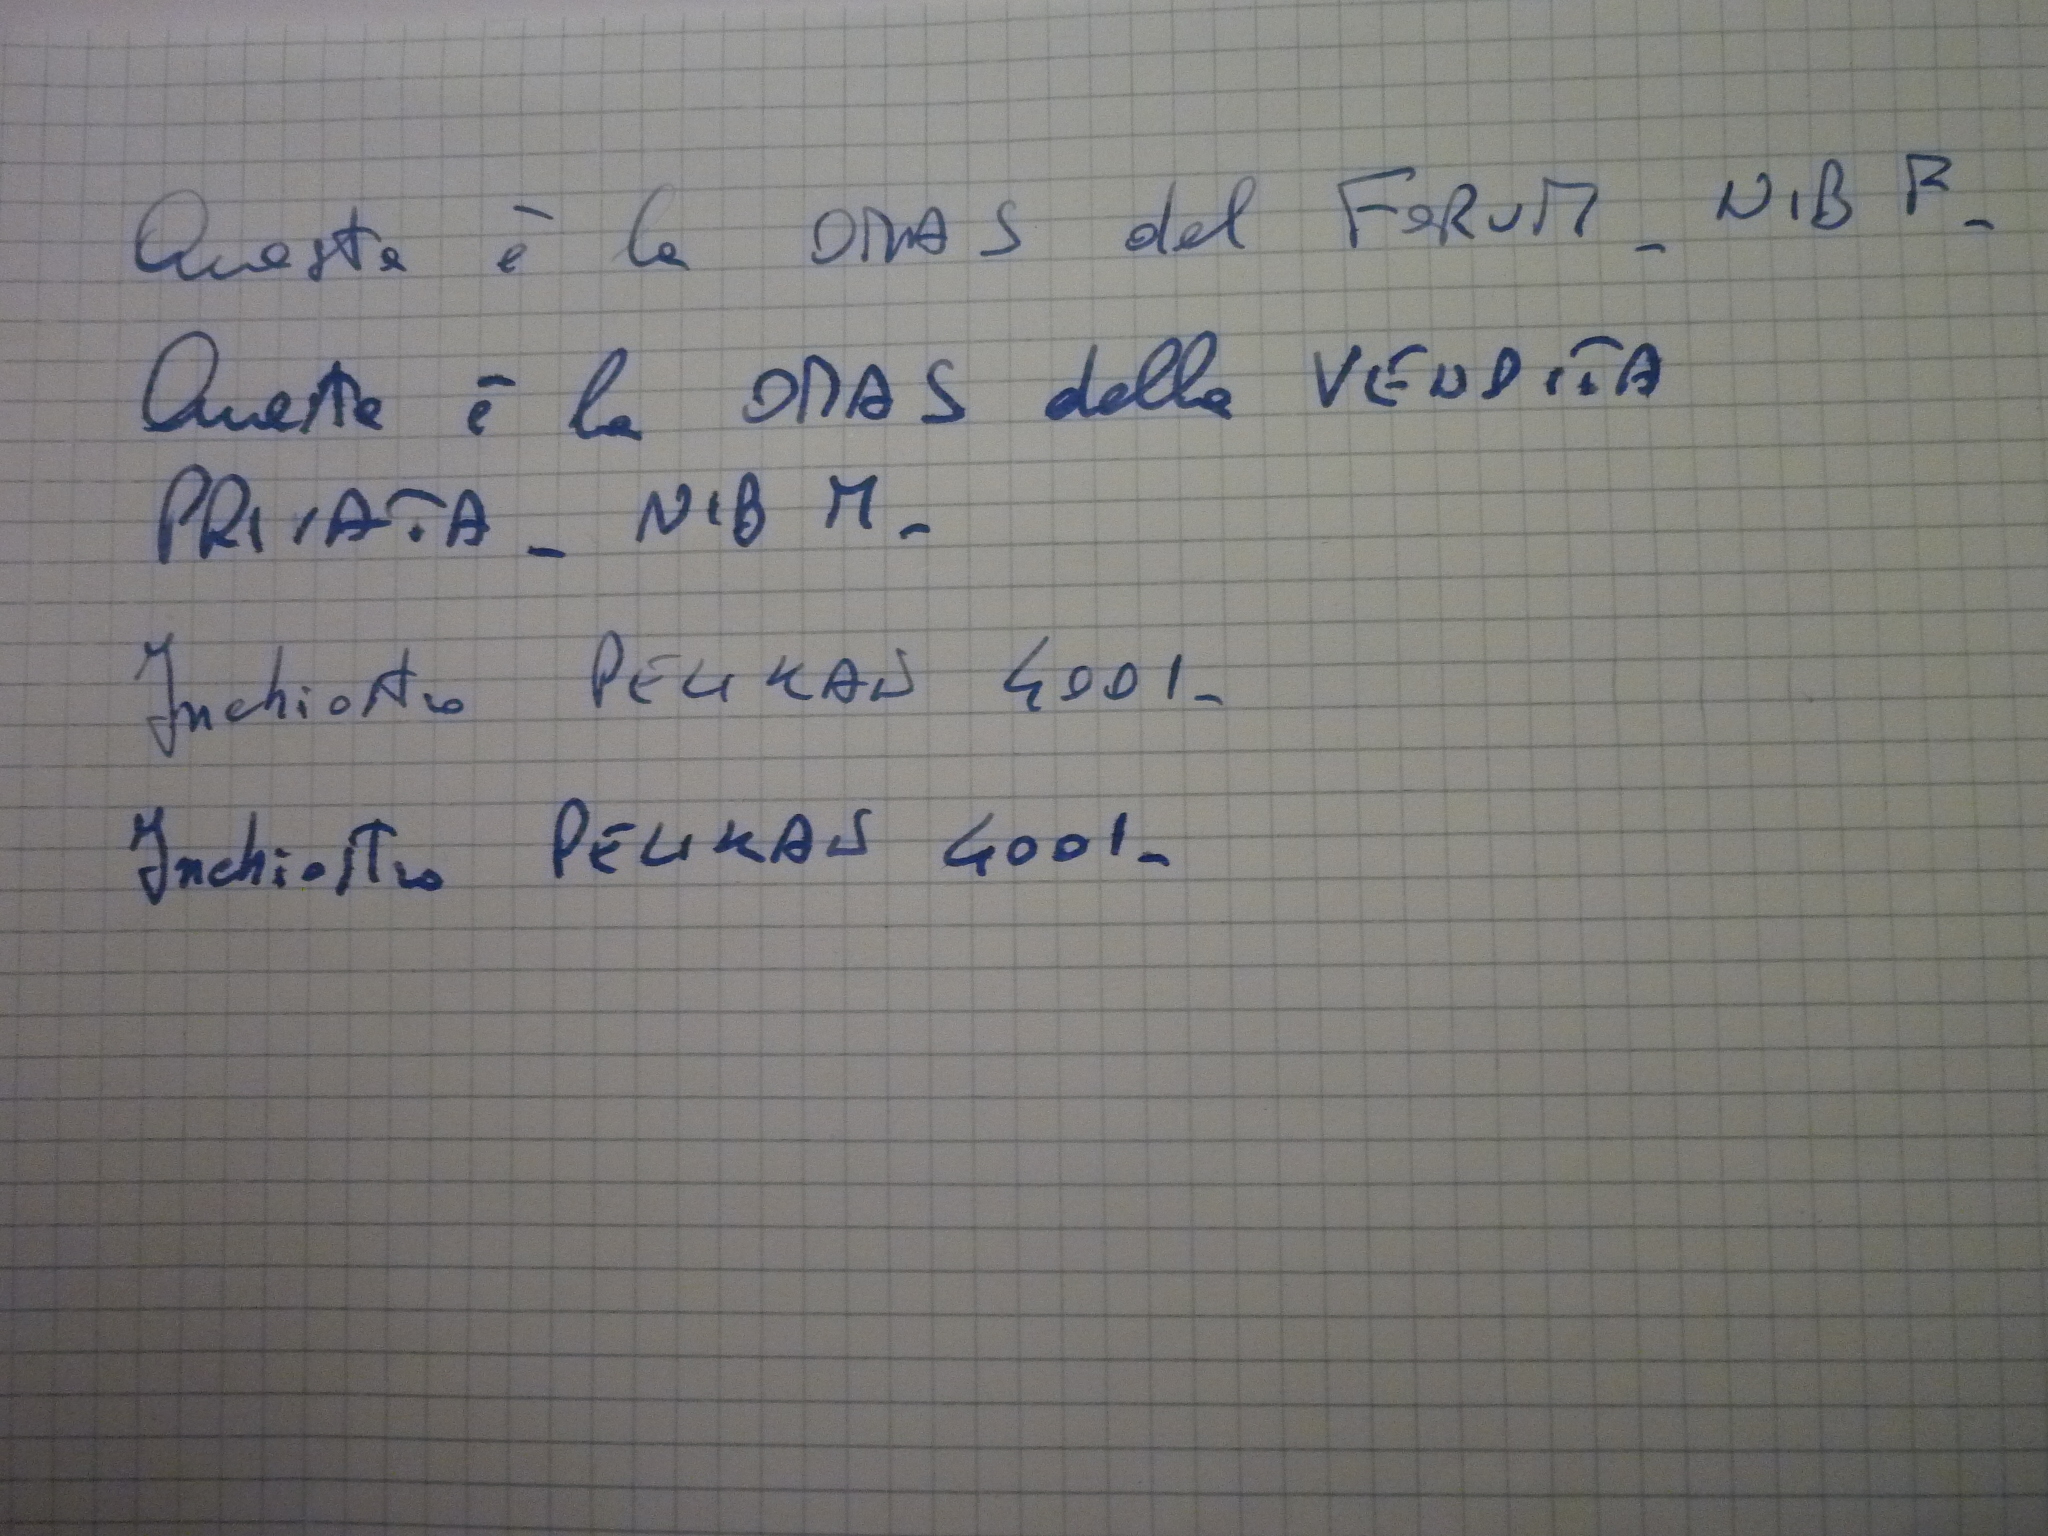 Questa è la OMAS del FORUM_ NIB F_
Questa è la OMAS della VENDITA
PRIVATA_ NIB M_
Inchiostro PELIKAN 4001_
Inchiostro PELIKAN 4001_